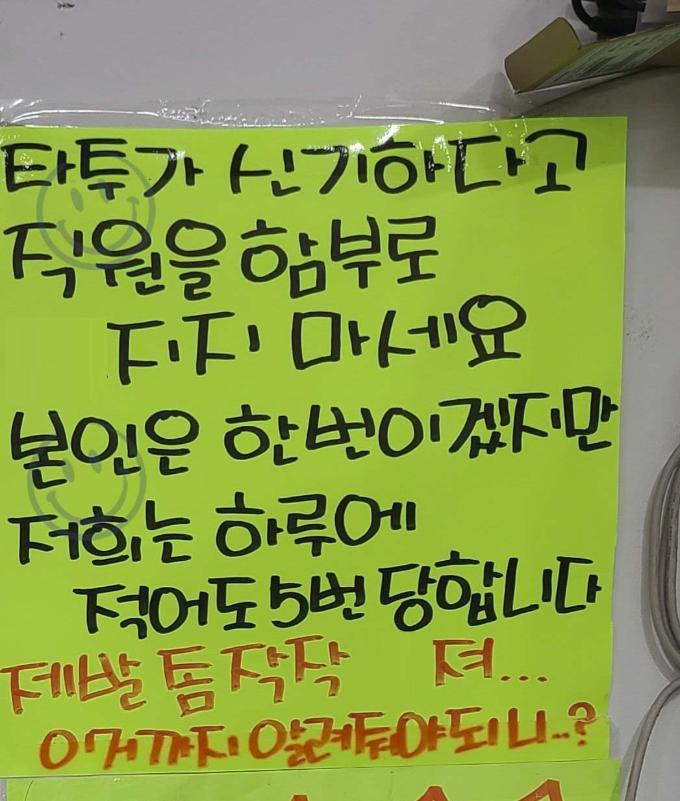 타투가 신기하다고
직원을 함부로
지지 마세요
본인은 한번이겠지만
저희는 하루에
적어도 5번 당합니다
제발 톰 작작 져...
이거까지 알려줘야되니..?